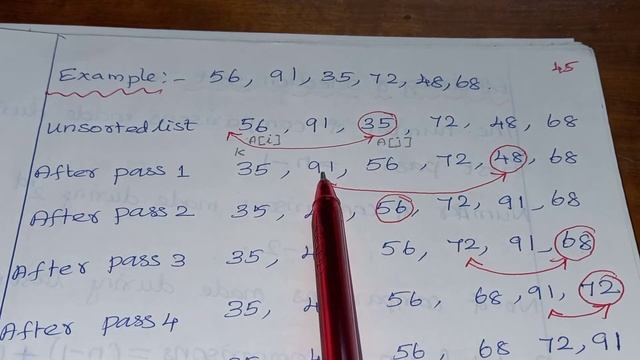 45
Example:- 56, 91, 35, 72, 48, 68.
Unsorted list 56, 91, 35, 72, 48, 68
A[i] A[j]
K
After pass 1 35, 91, 56, 72, 48, 68
After pass 2 35, 56, 72, 91, 68
After pass 3 35, 56, 72, 91, 68
After pass 4 35, 56, 68, 91, 72
56, 68 72, 91